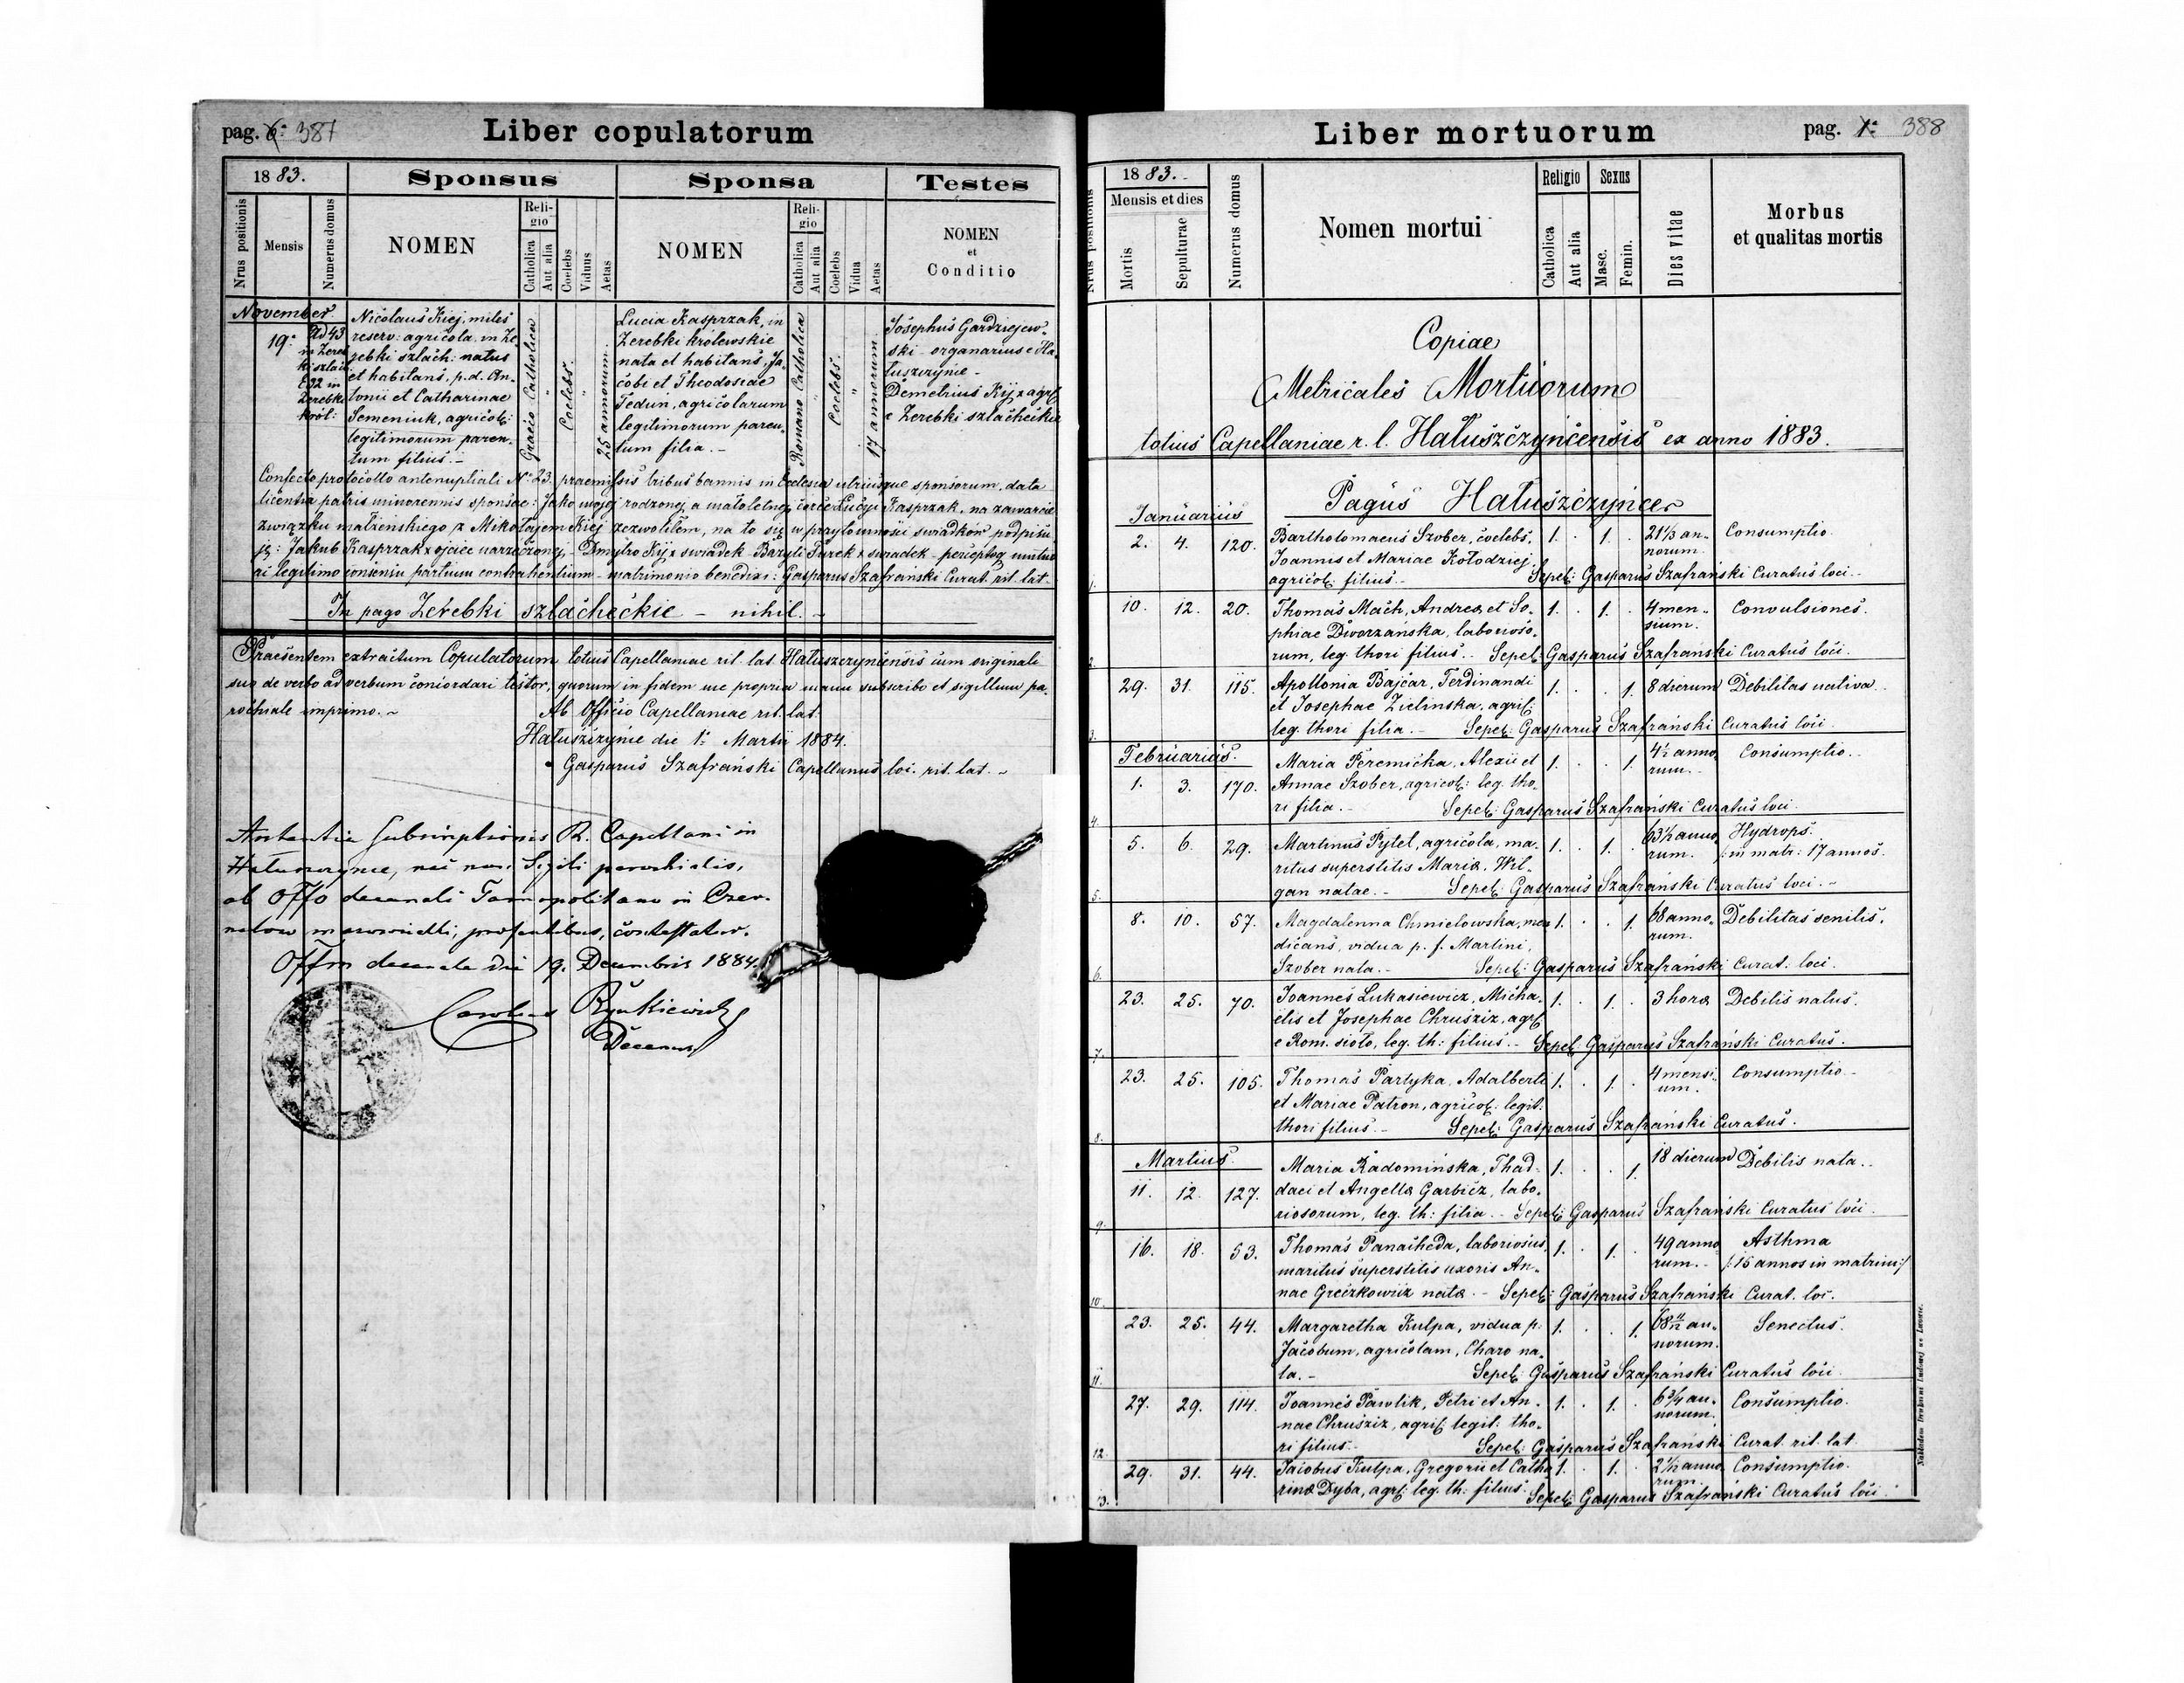 pag. 6. 387
Liber copulatorum
1883.
Sponsus
Sponsa
Testes
Nrus positionis
Mensis
Numerus domus
NOMEN
Religio
Catholica
Aut alia
Coelebs
Viduus
Aetas
NOMEN
Religio
Catholica
Aut alia
Coelebs
Vidua
Aetas
NOMEN
et
Conditio
November.
19.
Ad 43
in Zereb
ki szlach:
& 92 in
Zerebki
król:
Nicolaus Kiej, miles
reserv: agricola in Ze
rebki szlach: natus
et habitans, p.d. An„
tonii et Catharinae
Semeniuk, agricol:
legitimorum paren„
tum filius.–
Graeco Catholica
Coelebs.
25 annorum.
Lucia Kasprzak, in
Zerebki królewskie
nata et habitans, Ja„
cobi et Theodosiae
Fedun, agricolarum
legitimorum paren„
tum filia.–
Romano Catholica
Coelebs.
17 annorum
Josephus Gardziejew„
ski – organarius e Ha„
tuszczynie –
Demetrius Kij x agr:
e Zerebki szlacheckie
Confecto protocollo antenuptiali N: 23. praemissis tribus bannis in Ecclesia utriusque sponsorum, data
licentia patris minorennis sponsae: Jako mojej rodzonej a małoletnej córce Łucyi Kasprzak, na zawarcie
związku małżeńskiego z Mikołajem Kiej zezwoliłem, na to się w przytomności swiadków podpisu„
ję: Jakub Kasprzak x ojciec narzeczonej – Dmytro Kij x swiadek – Bazyli Turek x swiadek – perceptoq mutuo
ac legitimo consensu partium contrahentium – matrimonio benedixi: Gasparus Szafrański Curat. rit. lat.–
In pago Zerebki szlacheckie – nihil.–
Praesentem extractum Copulatorum totius Capellaniae rit. lat. Hatuszczyncensis cum originali
suo de verbo ad verbum concordari testor, quorum in fidem me propria manu subscribo et sigillum pa„
rochiale imprimo.–
Ab Officio Capellaniae rit. lat.
Hatuszczynce die 1: Martii 1884.
Gasparus Szafrański Capellanus loc. rit. lat.–
Subscriptionis R. Capellani in
Hatuszczynce, nec non Sigilli parochialis,
ab Offo decanali Tarnopolitano in Czer„
contestatur.
Offm decanale die 19. Decembris 1884.
Decanus
Liber mortuorum
pag. 1. 388
Nrus positionis
1883.
Mensis et dies
Mortis
Sepulturae
Numerus domus
Nomen mortui
Religio
Catholica
Aut alia
Sexus
Masc.
Femin.
Dies vitae
Morbus
et qualitas mortis
Copiae
Metricales Mortuorum
totius Capellaniae r. l. Hatuszczyncensis ex anno 1883.
Pagus Hatuszczynce
Januarius
1. 2. 4. 120. Bartholomaeus Szober, coelebs, 1. . 1. . 21 1/3 an„ Consumptio.
Joannis et Mariae Kołodziej norum.
agricol: filius.– Sepel: Gasparus Szafrański Curatus loci.–
2. 10. 12. 20. Thomas Mach, Andreae et So„ 1. . 1. . 4 men„ Convulsiones.
phiae Dworzańska, laborioso„ sium.
rum, leg. thori filius.– Sepel: Gasparus Szafrański Curatus loci.
3. 29. 31. 115. Apollonia Bajcar, Ferdinandi 1. . . 1. 8 dierum Debilitas nativa.
et Josephae Zielinska, agric:
leg. thori filia.– Sepel: Gasparus Szafrański Curatus loci.
Februarius.
4. 1. 3. 170. Maria Peremicka, Alexii et 1. . . 1. 4 1/2 anno„ Consumptio.
Annae Szober, agricol: leg. tho„ rum.–
ri filia.– Sepel: Gasparus Szafrański Curatus loci.
5. 5. 6. 29. Martinus Pytel, agricola, ma„ 1. . 1. . 63 1/2 anno„ Hydrops.
ritus superstitis Mariae, Wil„ rum. /: in matr: 17 annos.
gan natae.– Sepel: Gasparus Szafrański Curatus loci.–
6. 8. 10. 57. Magdalenna Chmielowska, men 1. . . 1. 68 anno„ Debilitas senilis.
dicans, vidua p. f. Martini, rum.
Szober nata.– Sepel: Gasparus Szafrański Curat: loci.
7. 23. 25. 70. Joannes Lukasiewicz, Micha„ 1. . 1. . 3 horae Debilis natus.
elis et Josephae Chruszcz, agr:
e Rom. sioło, leg. th: filius.– Sepel: Gasparus Szafrański Curatus.
8. 23. 25. 105. Thomas Partyka, Adalberti 1. . 1. . 4 mensi„ Consumptio.–
et Mariae Patron, agricol: legit. um.
thori filius.– Sepel: Gasparus Szafrański Curatus.
Martius.
9. 11. 12. 127. Maria Radomińska, Thad„ 1. . . 1. 18 dierum Debilis nata.
daei et Angellae Garbicz, labo„
riosorum, leg. th: filia.– Sepel: Gasparus Szafrański Curatus loci.
10. 16. 18. 53. Thomas Panacheda, laboriosus, 1. . 1. . 49 anno„ Asthma
maritus superstitis uxoris An„ rum.– /: 15 annos in matrim:/
nae Greczkowicz natae.– Sepel: Gasparus Szafrański Curat. loc.
11. 23. 25. 44. Margaretha Kulpa, vidua p. 1. . . 1. 68 11/12 an„ Senectus.
Jacobum, agricolam, Charo na„ norum.
ta.– Sepel: Gasparus Szafrański Curatus loci.
12. 27. 29. 114. Joannes Pawlik, Petri et An„ 1. . 1. . 6 3/4 an„ Consumptio.
nae Chruszcz, agric: legit: tho„ norum.
ri filius.– Sepel: Gasparus Szafrański Curat. rit. lat.
13. 29. 31. 44. Jacobus Kulpa, Gregorii et Catha 1. . 1. . 2 1/12 anno„ Consumptio.
rinae Dyba, agr: leg. th: filius. rum. Sepel: Gasparus Szafrański Curatus loci.
Nakładem Drukarni Ludowej we Lwowie.